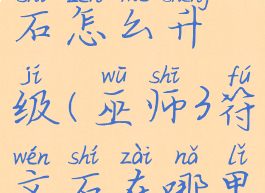 shí zěn me shēng
石怎么升
jí wū shī fú
级(巫师3符
wén shí zài nǎ lǐ
文石在哪里